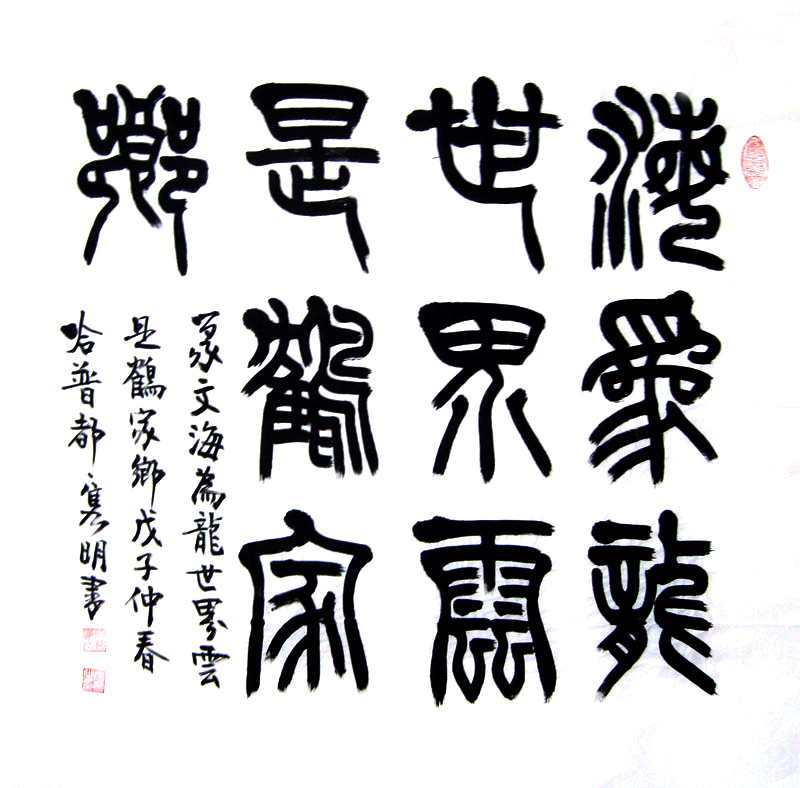 海為龍
世界雲
是鶴家
鄉
篆文海為龍世界雲
是鶴家鄉戊子仲春
哈普都·隽明書